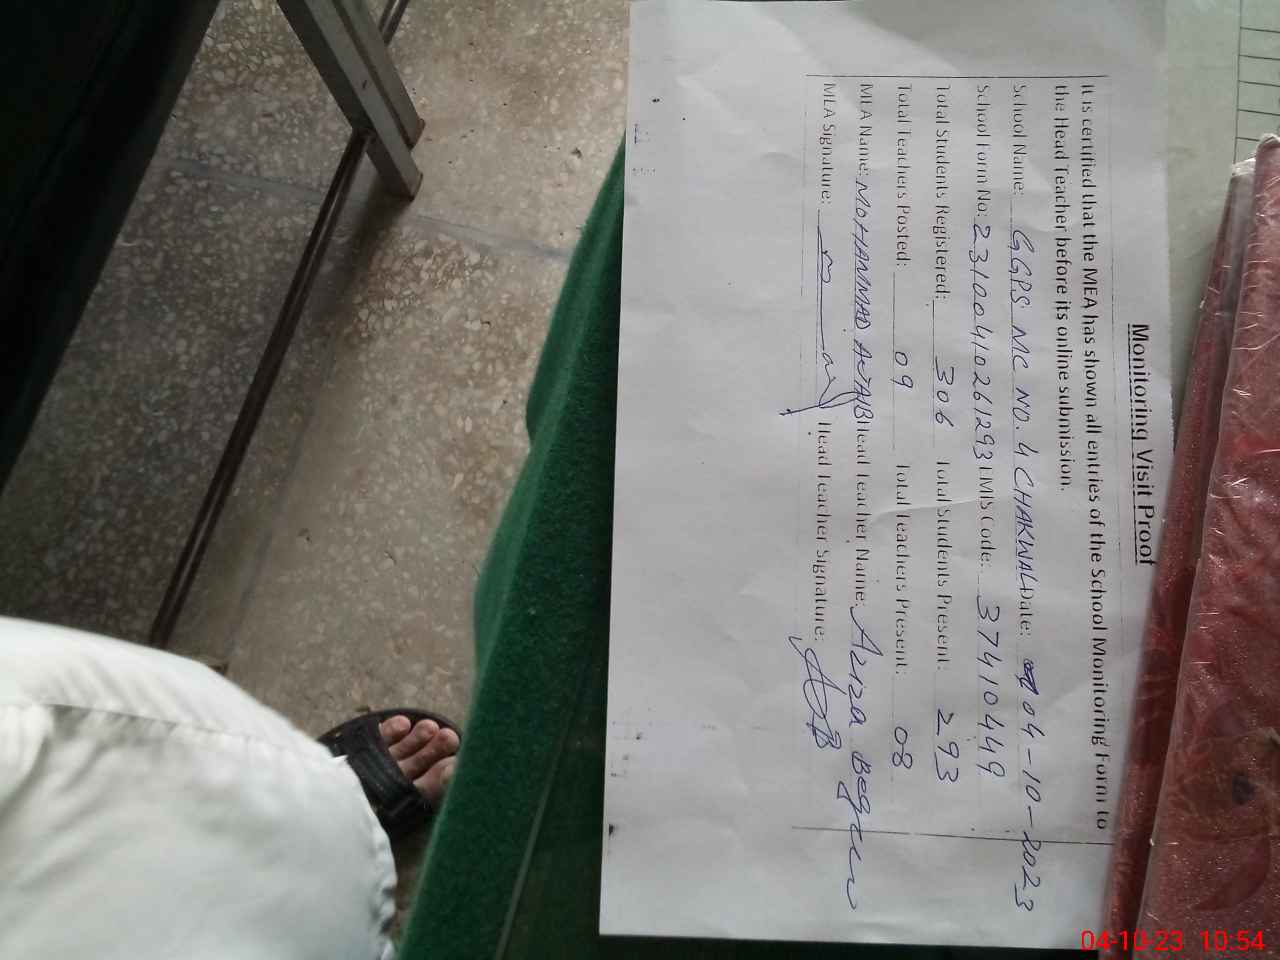 Monitoring Visit Proof
It is certified that the MEA has shown all entries of the School Monitoring Form to
the Head Teacher before its online submission.
School Name: GGPS MC NO. 4 CHAKWAL Date: 04-10-2023
School Form No: 23100410261293 EMIS Code: 37410449
Total Students Registered: 306 Total Students Present: 293
Total Teachers Posted: 09 Total Teachers Present: 08
MEA Name: MOHAMMAD AJAIB Head Teacher Name: Aziza Begum
MEA Signature: Head Teacher Signature: AB
04-10-23 10:54